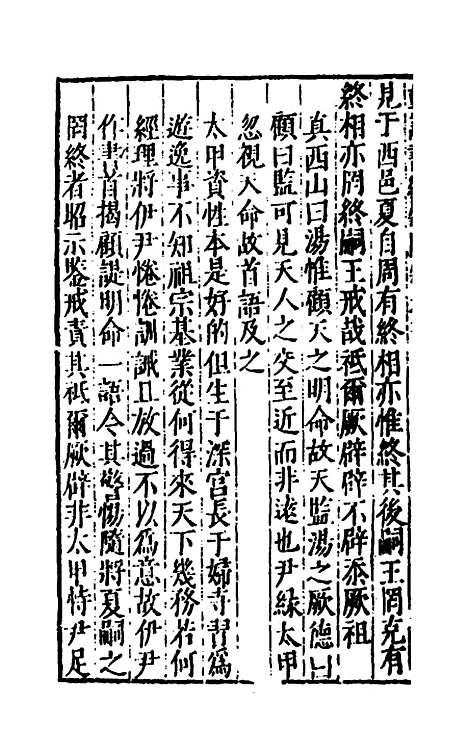 見于西邑夏自周有終相亦惟終其後嗣王罔克有
終相亦罔終嗣王戒哉祗爾厥辟辟不辟忝厥祖
真西山曰湯惟顧天之明命故天監湯之厥德曰
顧曰監可見天人之交至近而非遠也尹緣太甲
忽視天命故首語及之
太甲資性本是好的但生于深宮長于婦寺習為
遊逸事不知祖宗基業從何得來天下幾務若何
經理將伊尹惓惓訓誡且放過不以為意故伊尹
作書首揭顧諟明命一語令其警惕隨將夏嗣之
罔終者昭示鑒戒責其祗爾厥辟非太甲恃尹足